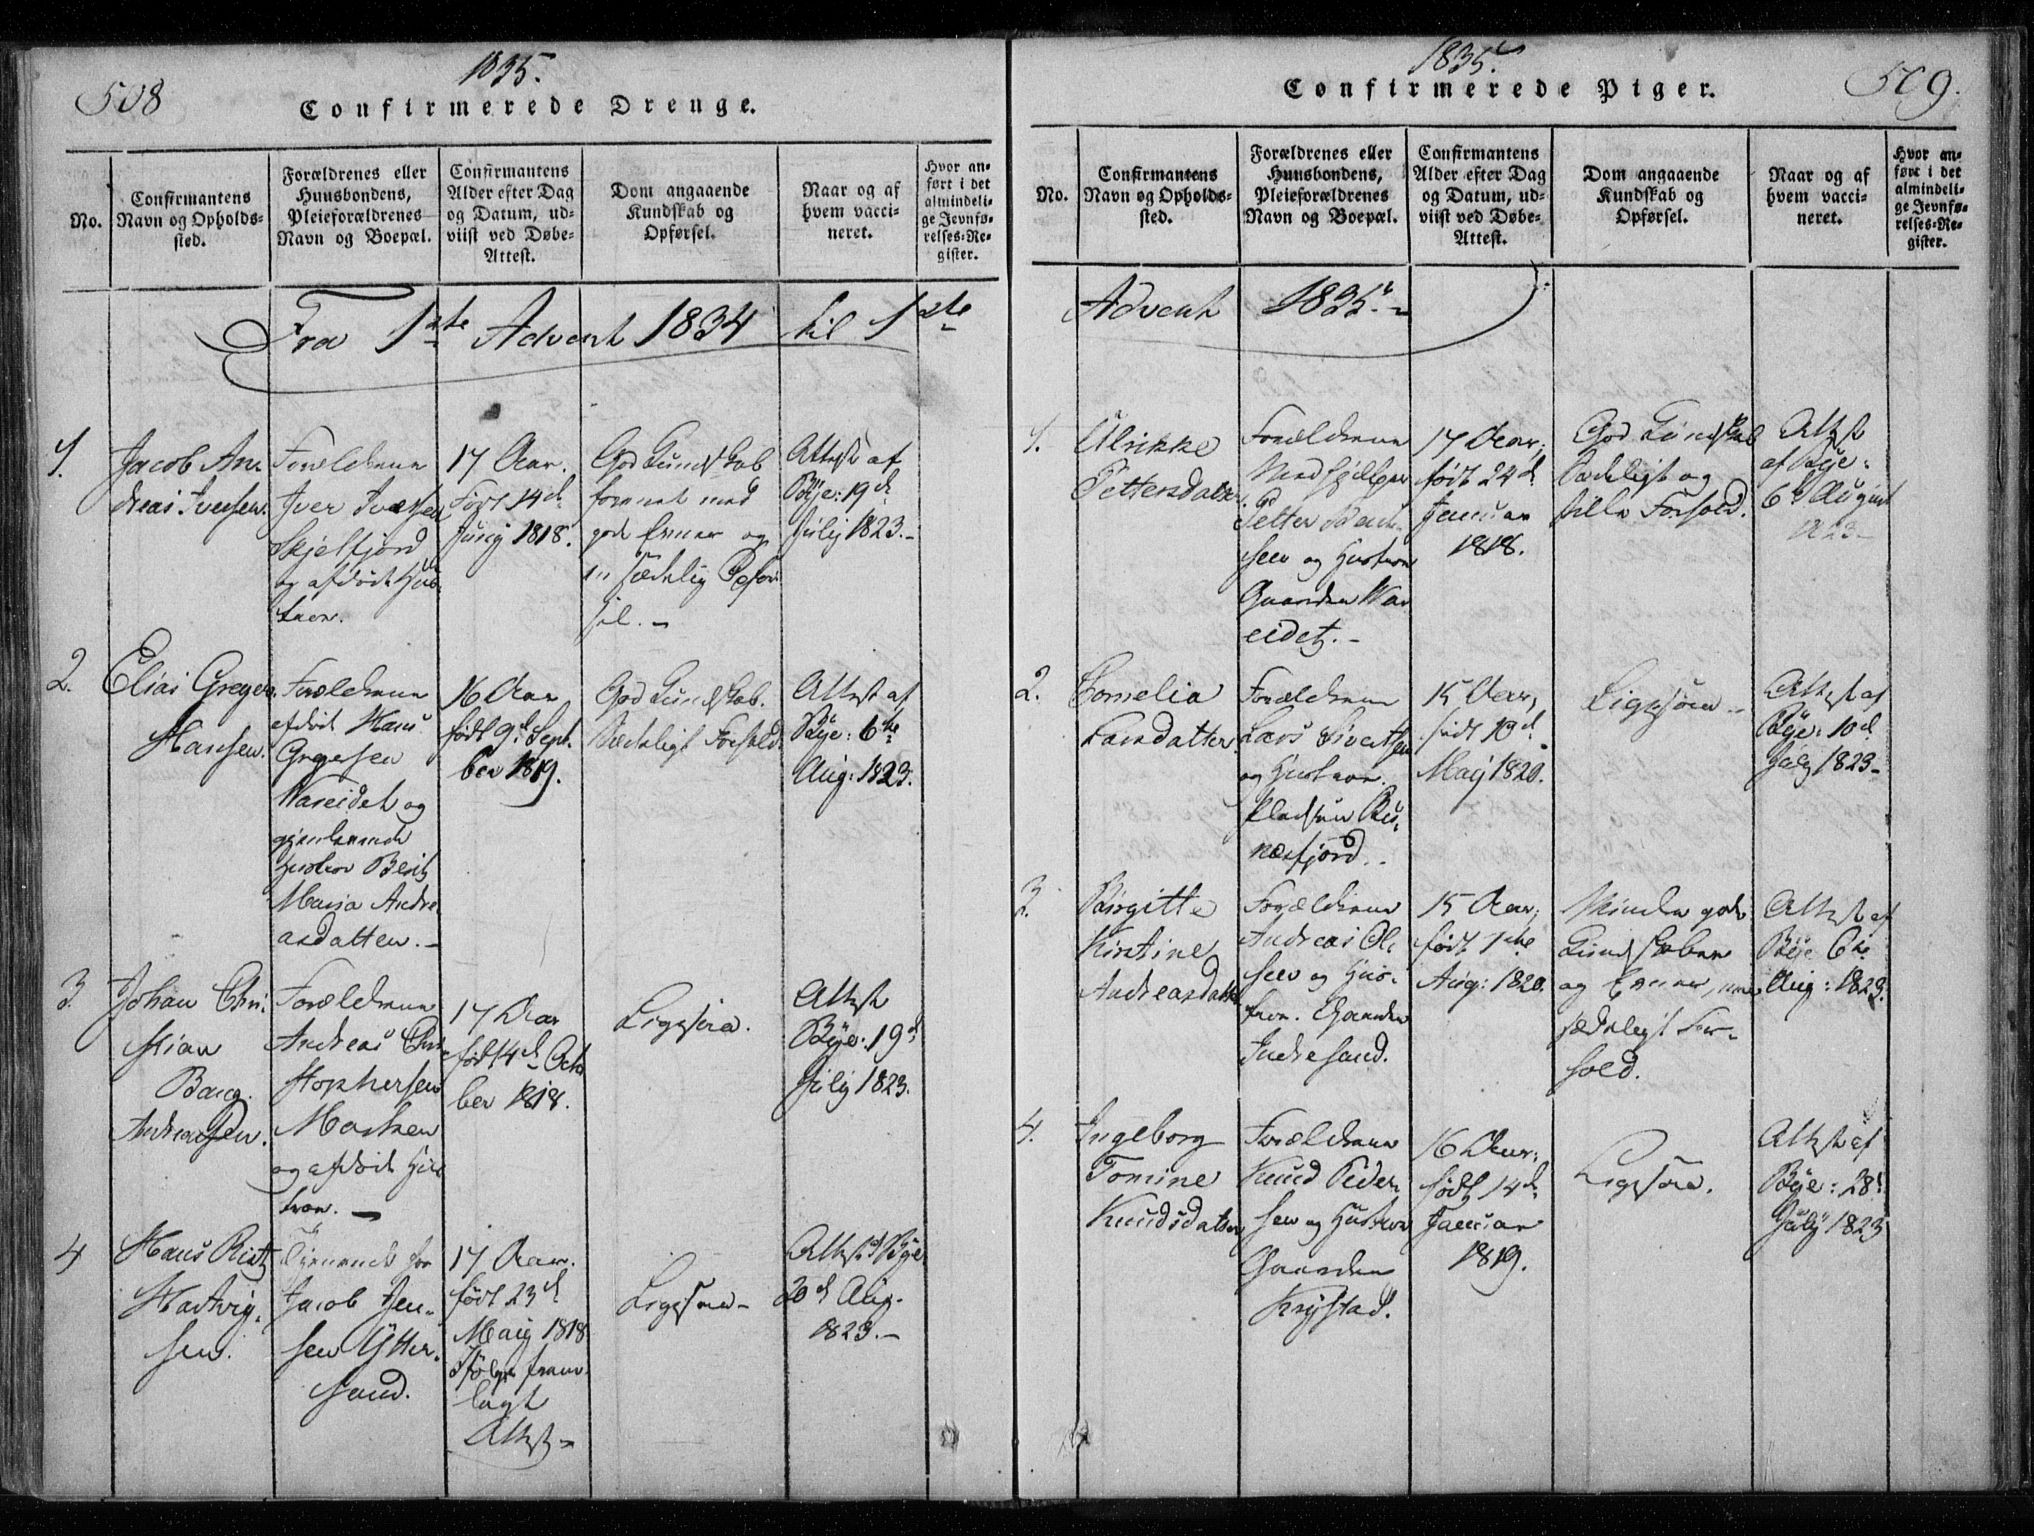 508
1835.
Confirmerede Drenge.
No.
Confirmantens
Navn og Opholds-
sted.
Forældrenes eller
Huusbondens,
Pleieforældrenes
Navn og Boepæl.
Confirmantens
Alder efter Dag
og Datum, ud-
viist ved Døbe-
Attest.
Dom angaaende
Kundskab og
Opførsel.
Naar og af
hvem vacci-
neret.
Hvor an-
ført i det
almindeli-
ge Jevnfø-
relses-Re-
gister.
Fra 1ste Advent 1834 til 1ste
1.
Jacob An-
dreas Iversen.
Forældrene
Iver Iversen
Skjelfjord
og afdøde Hus-
troe.
17 Aar.
Født 14de
Junij 1818.
God Kundskab
forenet med
gode Evner og
en sædelig Opfør-
sel. -
Attest af
Bye: 19de
Julij 1823. -
2.
Elias Greger
Hansen.
Forældrene
afdøde Hans
Gregersen
Nareidet og
gjenlevende
Hustroe Berit
Maria Andre-
asdatter. -
16 Aar
født 9de Septem-
ber 1819.
God Kundskab.
Sædeligt Forhold.
Attest af
Bye: 6te
Aug: 1823.
3.
Johan Chri-
stian
Bang
Andreasen.
Forældrene
Andreas Chri-
stophersen
Mortsen
og afdøde Hus-
troe. -
17 Aar
født 4de Octo-
ber 1818.
Ligesaa.
Attest
Bye: 19de
Julij 1823.
4
Hans Rist
Hartvig-
sen.
Tjenende for
Jacob Jen-
sen Ytter-
sand.
17 Aar.
født 23de
Maij 1818
Ifølge frem-
lagt
Attest -
Ligesaa -
Attest Bye
20de Aug.
1823. -
509.
1835.
Confirmerede Piger.
No.
Confirmantens
Navn og Opholds-
sted.
Forældrenes eller
Huusbondens,
Pleieforældrenes
Navn og Boepæl.
Confirmantens
Alder efter Dag
og Datum, ud-
viist ved Døbe-
Attest.
Dom angaaende
Kundskab og
Opførsel.
Naar og af
hvem vacci-
neret.
Hvor an-
ført i det
almindeli-
ge Jevnfø-
relses-Re-
gister.
Advent 1835. -
1.
Ulrikke
Pettersdatter
Forældrene
Medhjelper
Petter
sen og Hustroe
Gaarden Nar
eidet. -
17 Aar,
født 24de
Januar
1818.
God Kundskab
Sædeligt og
stille Forhold.
Attest
af Bye:
6te August
1823 -
2.
Cornelia
Larsdatter
Forældrene
Lars Sivertsen
og Hustroe.
Pladsen
næsfjord.
15 Aar,
født 19de
Maij 1820.
Ligesaa -
Attest af
Bye: 10de
July 1823 -
3.
Birgitte
Kirstine
Andreasdatter
Forældrene
Andreas Ol-
sen og Hus-
troe. Gaarden
Indresand.
15 Aar,
født 1ste
Aug: 1820.
Mindre gode
Kundskaber
og Evner, men
sædeligt For-
hold.
Attest af
Bye 6te
Aug: 1823.
4.
Ingeborg
Tomine
Knudsdatter
Forældrene
Knud Peder-
sen og Hustroe
Gaarden
Krystad.
16 Aar.
født 14de
Januar
1819.
Ligesaa.
Attest af
Bye: 28de
July 1823